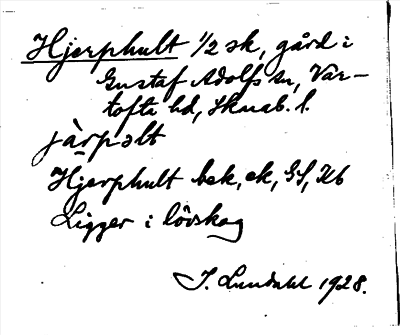 Hjerphult 1/2 sk, gård i
Gustaf Adolfs sn, Var-
tofta hd, Skarab. l.
jàrpəlt
Hjerphult bek, ek, GS, Kb
Ligger i lövskog
J. Lundahl 1928.